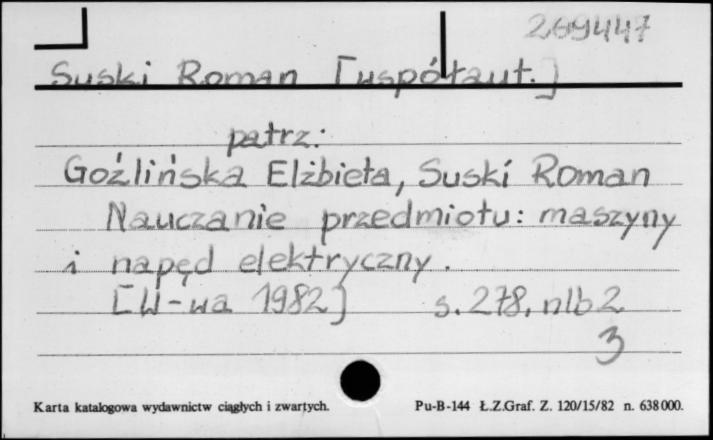 269447
Suski Roman [współaut.]
patrz:
Goźlińska Elżbieta, Suski Roman
Nauczanie przedmiotu: maszyny
i napęd elektryczny.
[W-wa 1982] s. 278, nlb 2
3
Karta katalogowa wydawnictw ciągłych i zwartych. Pu-B-144 Ł.Z.Graf. Z. 120/15/82 n. 638000.